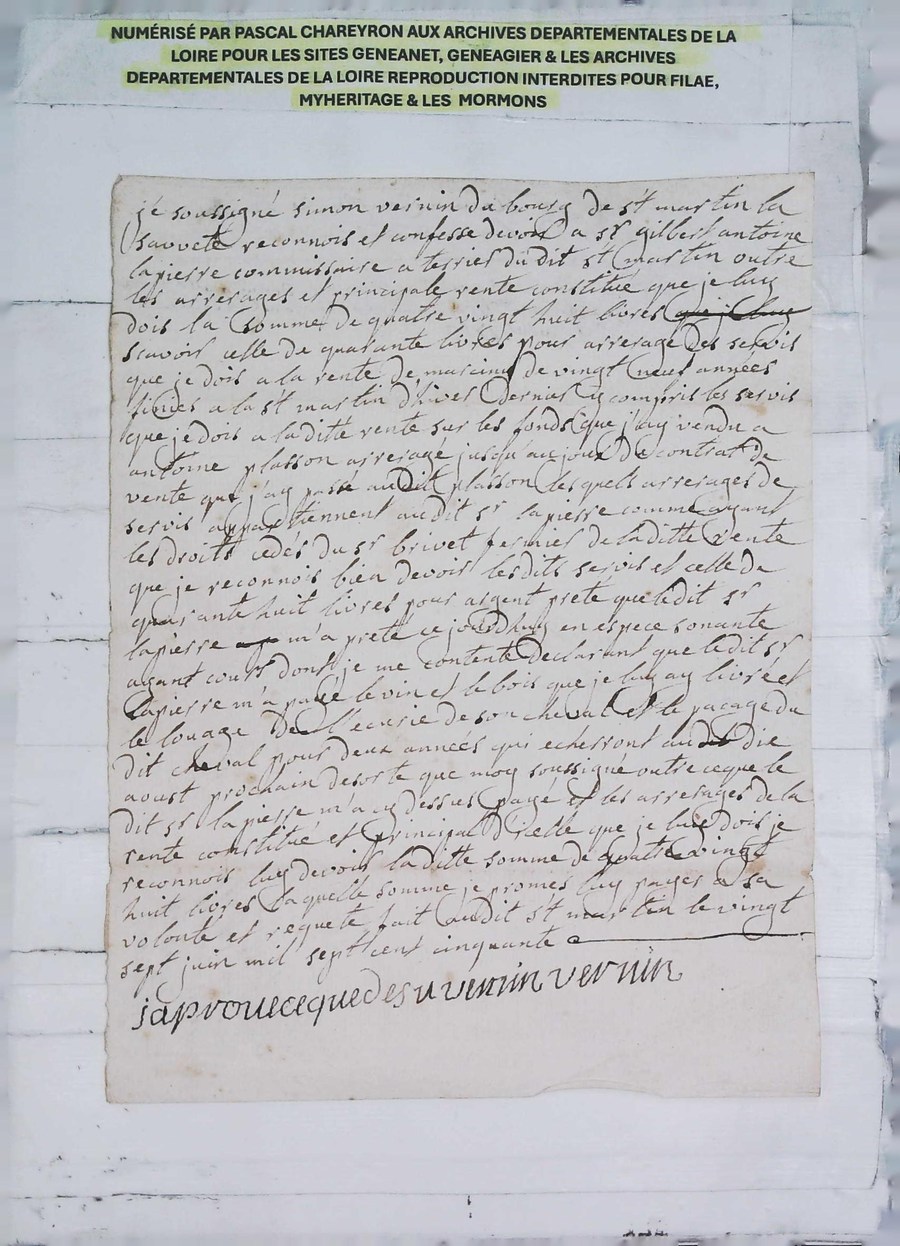 NUMÉRISÉ PAR PASCAL CHAREYRON AUX ARCHIVES DEPARTEMENTALES DE LA
LOIRE POUR LES SITES GENEANET, GENEAGIER & LES ARCHIVES
DEPARTEMENTALES DE LA LOIRE REPRODUCTION INTERDITES POUR FILAE,
MYHERITAGE & LES MORMONS
je soussigné simon vernin du bourg de st martin la
sauveté reconnois et confesse devoir a sr gilbert antoine
lapierre commissaire a terrier dudit st martin outre
les arrerages et principale rente constitué que je luy
dois la somme de quatre vingt huit livres que je luy
scavoir celle de quarante livres pour arrerage des servis
que je dois a la rente de de vingt neuf années
finies a la st martin d'hiver dernier y compris les servis
que je dois a la ditte rente sur les fonds que j'ay vendu a
antoine plasson arreragé jusqu'au jour de contrat de
vente que j'ay passé audit plasson lesquels arrerages de
servis appartiennent audit sr lapierre comme ayant
les droits cedés du sr brivet fermier de la ditte rente
que je reconnois bien devoir lesdits servis et celle de
quarante huit livres pour argent preté que ledit sr
lapierre m'a preté ce jourdhuy en espece sonante
ayant cours dont je me contente declarant que ledit sr
lapierre m'a payée le vin et le bois que je luy ay livré et
le louage de l'ecurie de son cheval et le pacage du
dit cheval pour deux années qui echerront au dix
aoust prochain desorte que moy soussigné outre ceque le
dit sr lapierre m'a cy dessus payé et les arrerages de la
rente constitué et principal d'icelle que je luie dois je
reconnois luy devoir la ditte somme de quatre vingt
huit livres laquelle somme je promes luy payer a sa
volonté et requeté fait audit st martin le vingt
sept juin mil sept cent cinquante
japrouecequedesu vernin vernin